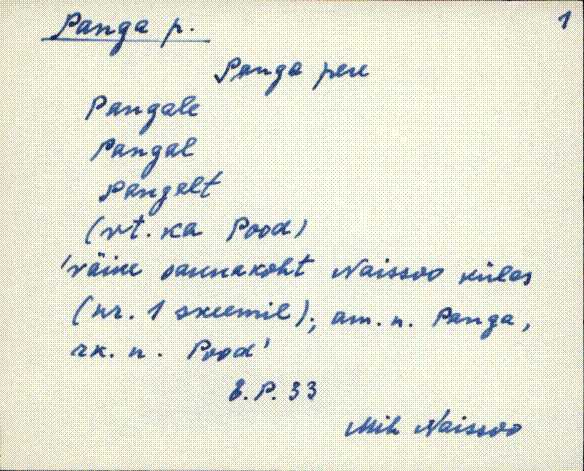 Panga p.
1
Panga pere
Pangale
Pangal
Pangalt
(vt. ka Pood)
'väike saunakoht Naissoo külas
(nr. 1 skeemil); am. n. Panga,
rk. n. Pood'
E.P. 33
Mih Naissoo